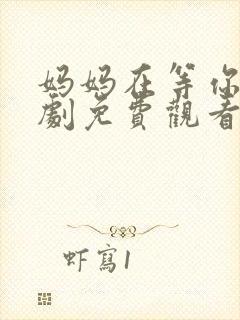 妈妈在等你
劇免費觀看
虾寫1